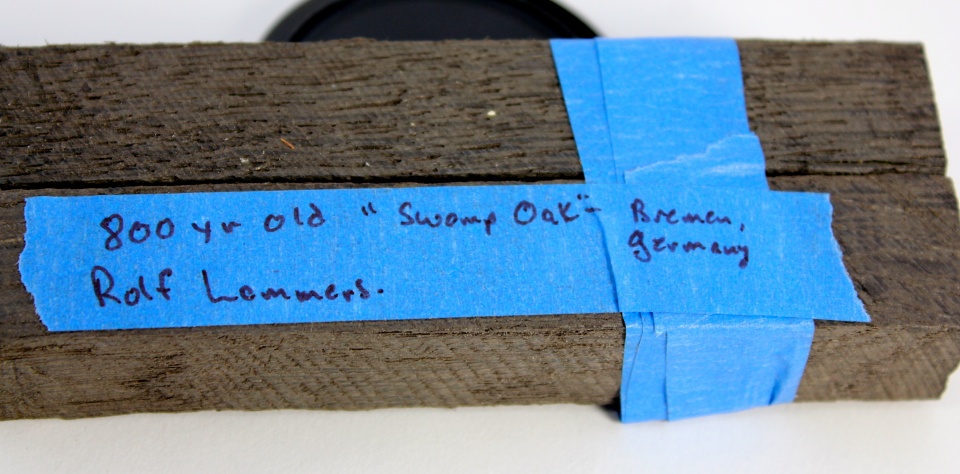 800 yr old "Swamp Oak" - Bremen,
Germany
Rolf Lammers.